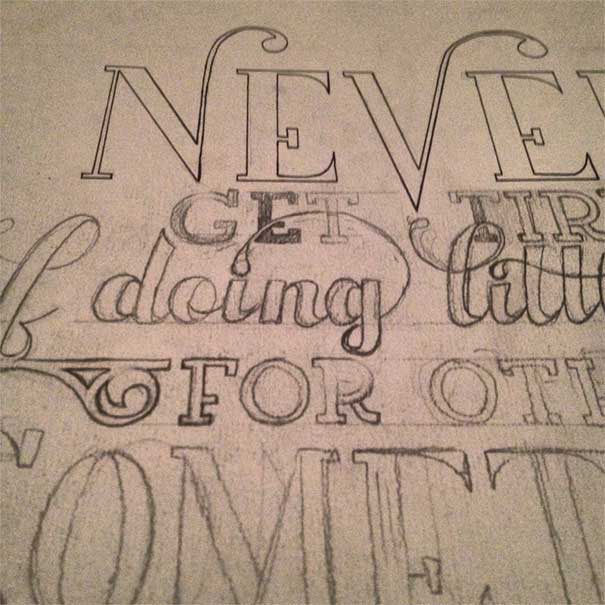 NEVE
GET TIR
f doing littl
FOR OTH
OMET